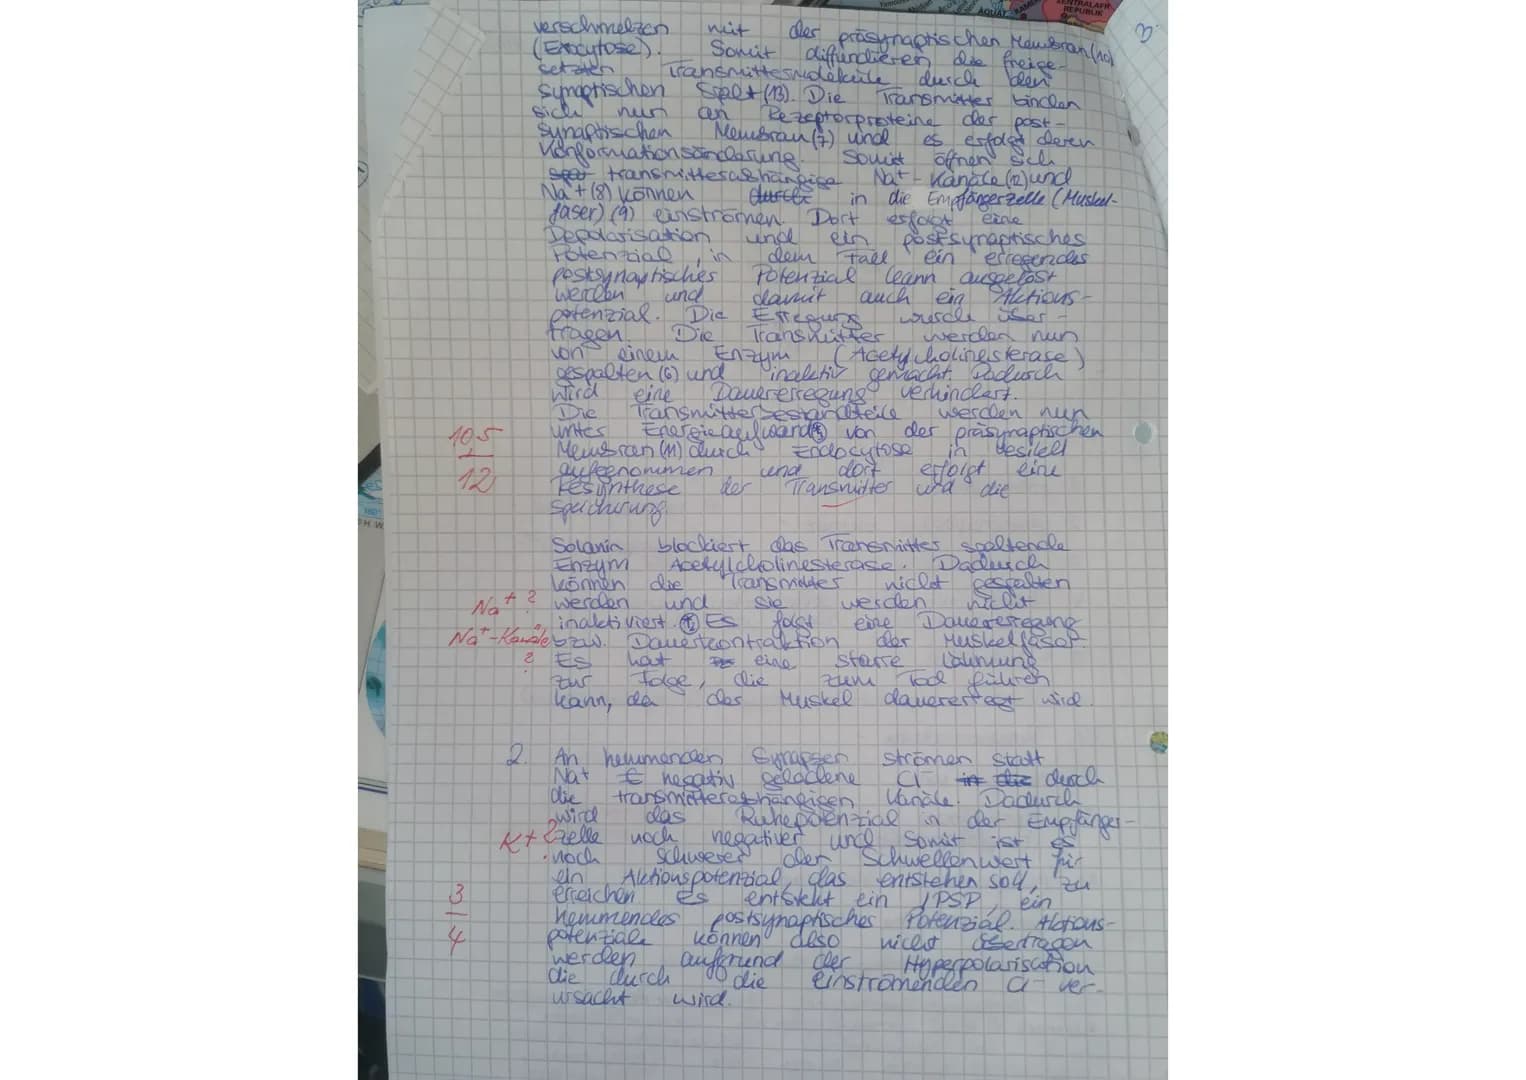 ZENTRALAFR.
REPUBLIK
ÄQUAT
3.
verschmelzen mit der präsynaptischen Membran (10)
(Exocytose). Somit diffundieren die freige-
setzten Transmittermoleküle durch den
synaptischen Spalt (13). Die Transmitter binden
sich nun an Rezeptorproteine der post-
synaptischen Membran (7) und es erfolgt deren
Konformationsänderung. Somit öffnen sich
transmitterabhängige Na+ - Kanäle (12) und
Na + (8) können durch in die Empfängerzelle (Muskel-
faser) (9) einströmen. Dort erfolgt eine
Depolarisation und ein postsynaptisches
Potenzial, in dem Fall ein erregendes
postsynaptisches Potenzial kann ausgelöst
werden und damit auch ein Aktions-
potenzial. Die Erregung wurde über-
tragen. Die Transmitter werden nun
von einem Enzym (Acetylcholinesterase)
gespalten (6) und inaktiv gemacht. Dadurch
wird eine Dauererregung verhindert.
Die Transmitterbestandteile werden nun
unter Energieaufwand von der präsynaptischen
Membran (11) durch Endocytose in Vesikel
aufgenommen und dort erfolgt eine
Resynthese der Transmitter und die
Speicherung.
10,5
12
Solanin blockiert das Transmitter spaltende
Enzym Acetylcholinesterase. Dadurch
können die Transmitter nicht gespalten
werden und sie werden nicht
inaktiviert. Es folgt eine Dauererregung
bzw. Dauerkontraktion der Muskelfaser.
Es hat eine starre Lähmung
zur Folge, die zum Tod führen
kann, da der Muskel dauererregt wird.
Na+ ?
Na+-Kanäle
?
2. An hemmenden Synapsen strömen statt
Na+ negativ geladene Cl- in die durch
die transmitterabhängigen Kanäle. Dadurch
wird das Ruhepotenzial in der Empfänger-
zelle noch negativer und somit ist es
noch schwerer den Schwellenwert für
ein Aktionspotenzial, das entstehen soll, zu
erreichen. Es entsteht ein IPSP, ein
hemmendes postsynaptisches Potenzial. Aktions-
potenziale können also nicht übertragen
werden aufgrund der Hyperpolarisation
die durch die einströmenden Cl- ver-
ursacht wird.
K+ ?
3
4